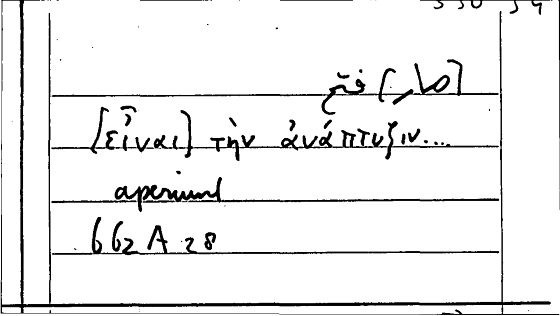 [صار] فتح
[εἶναι] τὴν ἀνάπτυξιν....
aperiunt
662 A 28